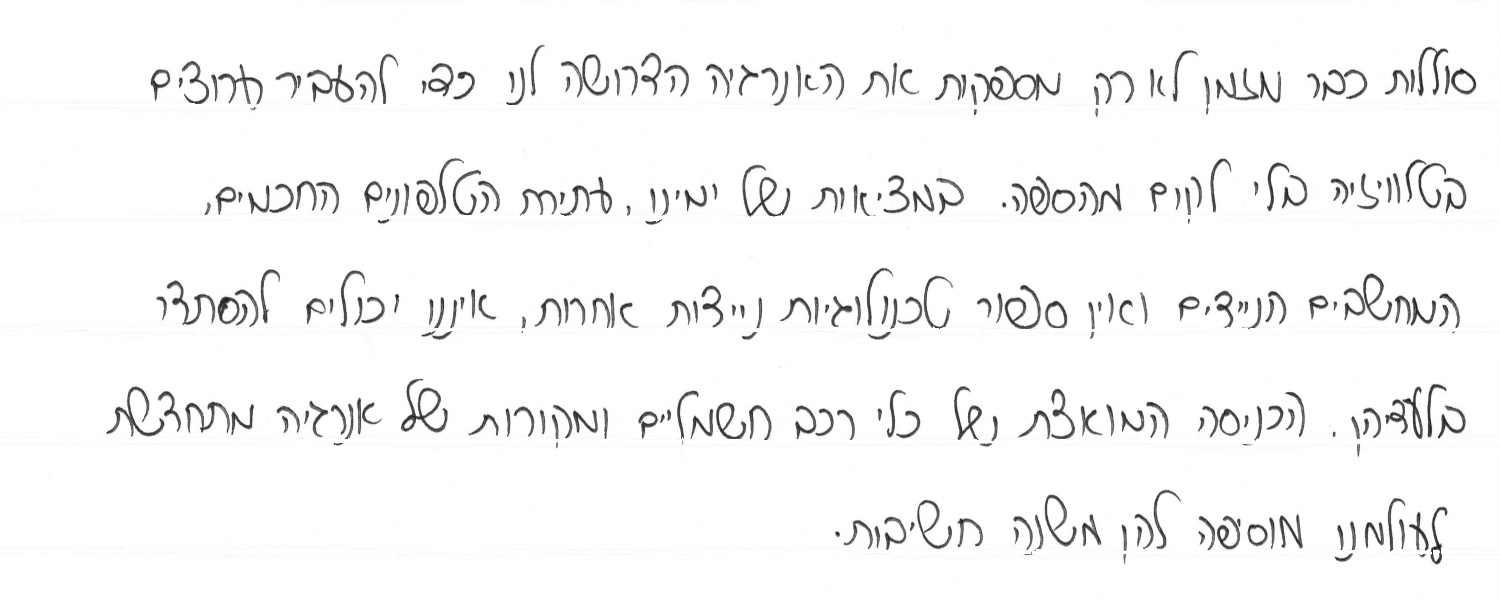 סוללות כבר מזמן לא רק מספקות את האנרגיה הדרושה לנו כדי להעביר ערוצים
בטלוויזיה בלי לקום מהספה. במציאות של ימינו, עתירת הטלפונים החכמים,
המחשבים הניידים ואין ספור טכנולוגיות ניידות אחרות, איננו יכולים להסתדר
בלעדיהן. הכניסה המואצת של כלי רכב חשמליים ומקורות של אנרגיה מתחדשת
לעולמנו מוסיפה להן משנה חשיבות.